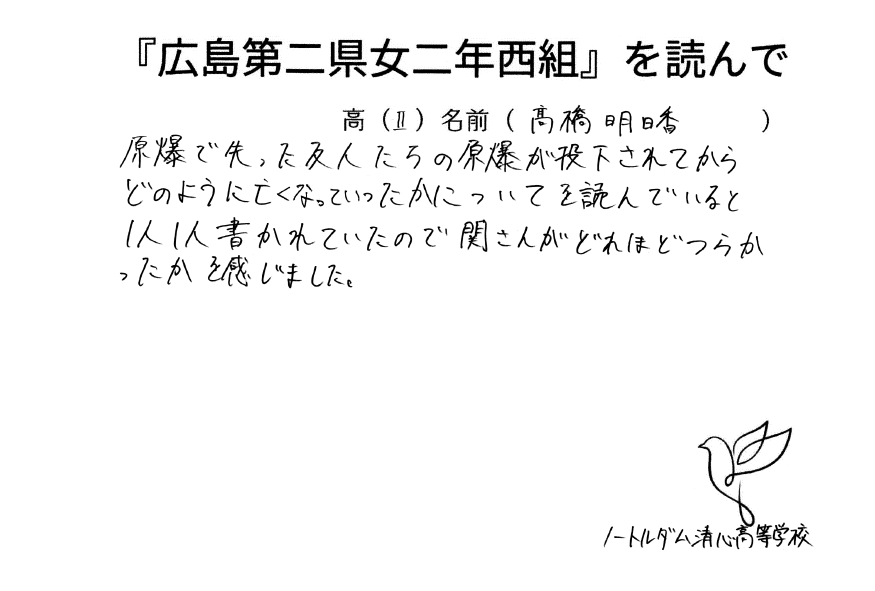 『広島第二県女二年西組』を読んで
高（Ⅱ）名前（髙橋 明日香　　）
原爆で失った友人たちの原爆が投下されてから
どのように亡くなっていったかについてを読んでいると
1人1人書かれていたので関さんがどれほどつらか
ったかを感じました。
ノートルダム清心高等学校